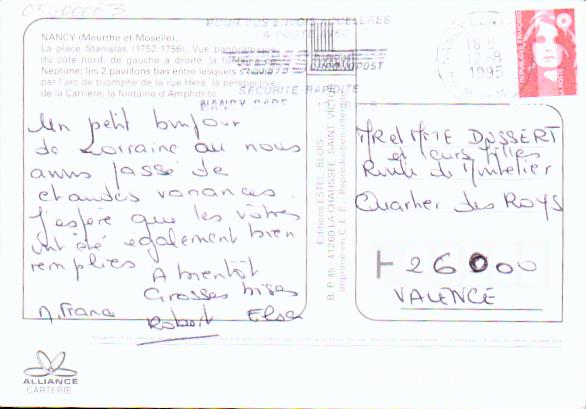 NANCY (Meurthe et Moselle).
La place Stanislas (1752-1756). Vue panoramique
du côté nord: de gauche à droite, la fontaine de
Neptune; les 2 pavillons bas entre lesquels s'ouvre,
par l'arc de triomphe de la rue Héré, la perspective
de la Carrière; la fontaine d'Amphitrite.
POUR VOS ENVOIS ACCELERES
LA POSTE AVEC
POST
SECURITE RAPIDITE
NANCY GARE
16 H
12-8
1995
REPUBLIQUE FRANÇAISE
Un petit bonjour
de Lorraine où nous
avons passé de
chaudes vacances.
J'espère que les vôtres
ont été également bien
remplies A bientôt
Grosses bises
M. France Robert Elsa
Editions ESTEL-BLOIS
B.P. 45 - 41260 LA CHAUSSEE SAINT VICTOR
Imprimé en C.E.E. - Reproduction interdite
MR et MME DUSSERT
et leurs filles
Route de Montelier
Quartier des ROYS
26000
VALENCE
ALLIANCE
CARTERIE